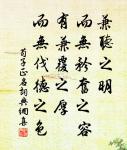 兼聽之明
而無矜奮之容
有兼覆之厚
而無伐德之色
荀子正名詞典網集